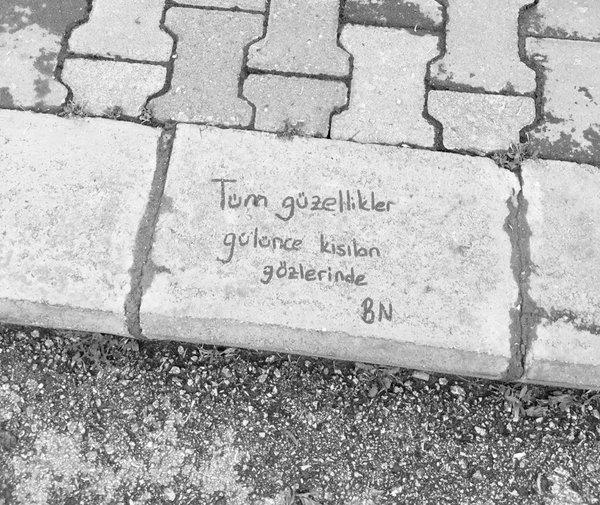 Tüm güzellikler
gülünce kısılan
gözlerinde
BN